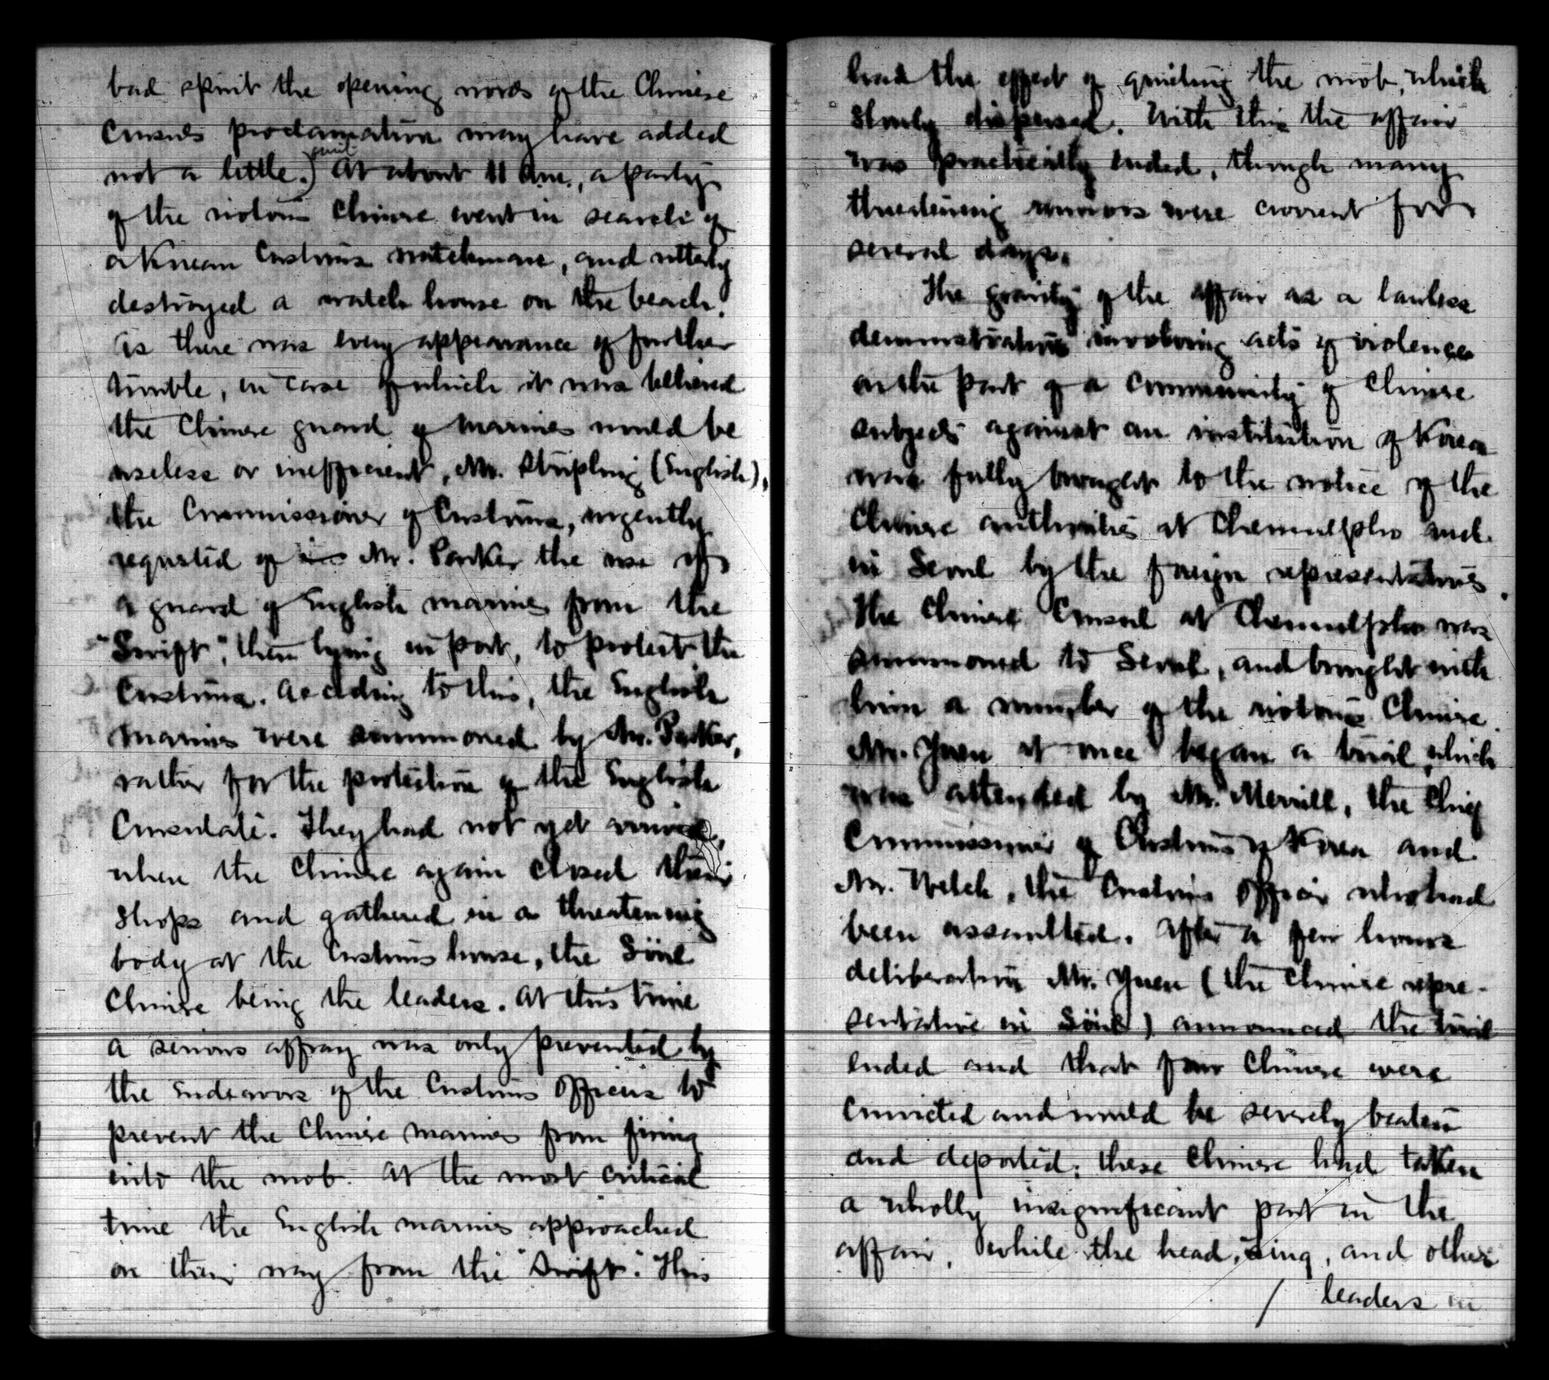 bad spirit the opening words of the Chinese
Consul's proclamation may have added
not a little.) At about 11 A.m., a party
of the riotous Chinese went in search of
a Korean Customs watchman, and utterly
destroyed a watch house on the beach.
As there was every appearance of further
trouble, in case of which it was believed
the Chinese guard of marines would be
useless or inefficient, Mr. Stripling (English),
the Commissioner of Customs, urgently
requested of Mr. Parker the use of
a guard of English marines from the
"Swift", then lying in port, to protect the
Customs. According to this, the English
marines were summoned by Mr. Parker,
rather for the protection of the English
Consulate. They had not yet arrived,
when the Chinese again closed their
shops and gathered in a threatening
body at the Customs house, the Söul
Chinese being the leaders. At this time
a serious affray was only prevented by
the endeavors of the Customs officers to
prevent the Chinese marines from firing
into the mob. At the most critical
time the English marines approached
on their way from the "Swift". This
had the effect of quieting the mob, which
slowly dispersed. With this the affair
was practically ended, though many
threatening rumors were current for
several days.
The gravity of the affair as a lawless
demonstration involving acts of violence
on the part of a community of Chinese
subjects against an institution of Korea
was fully brought to the notice of the
Chinese authorities at Chemulpho and
in Seoul by the foreign representatives.
The Chinese Consul at Chemulpho was
summoned to Seoul, and brought with
him a number of the riotous Chinese.
Mr. Yuen at once began a trial, which
was attended by Mr. Merrill, the Chief
Commissioner of Customs of Korea and
Mr. Welch, the Customs officer who had
been assaulted. After a few hours
deliberation Mr. Yuen (the Chinese repre-
sentative in Söul) announced the trial
ended and that four Chinese were
convicted and would be severely beaten
and deported; these Chinese had taken
a wholly insignificant part in the
affair, while the head, Sing, and other
/ leaders in